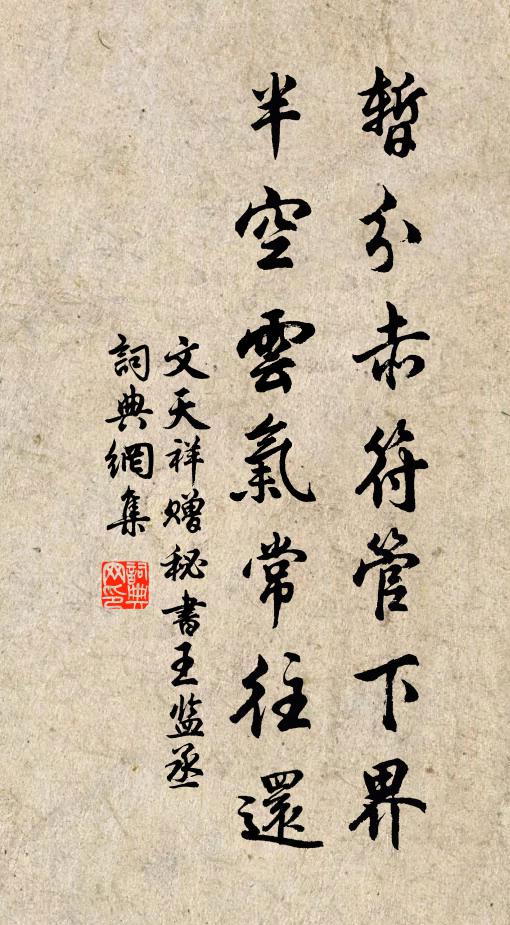 暫分赤符管下界
半空雲氣常往還
文天祥赠秘書王监丞
詞典網集
詞典
网印